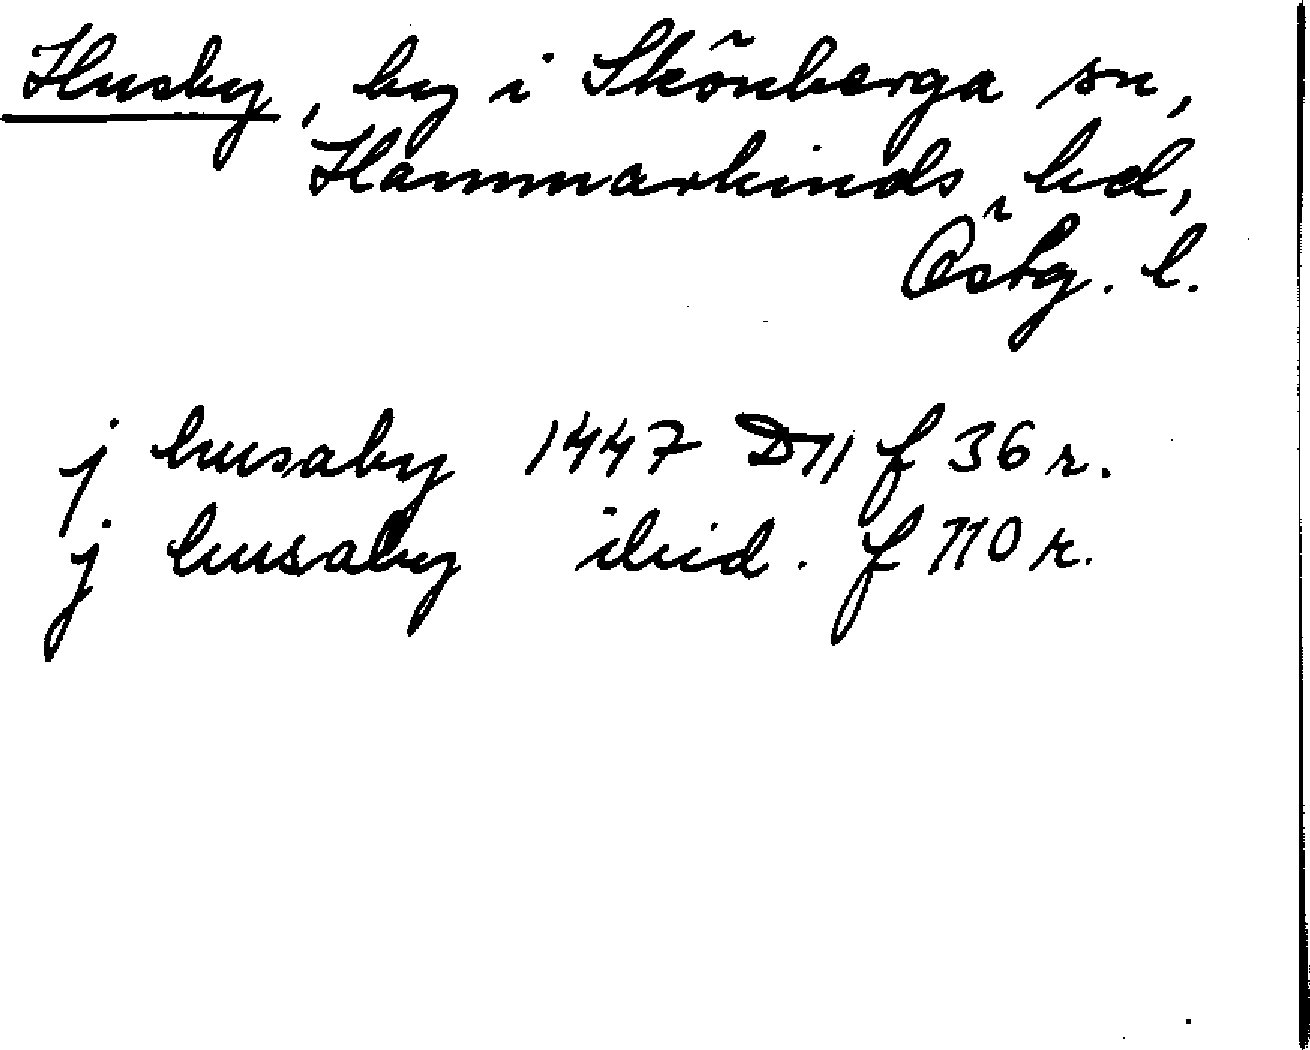 Husby, by i Skönberga sn,
Hammarkinds hd,
Östg. l.
j husaby 1447 D11 f 36 r.
j husaby ibid. f 110 r.